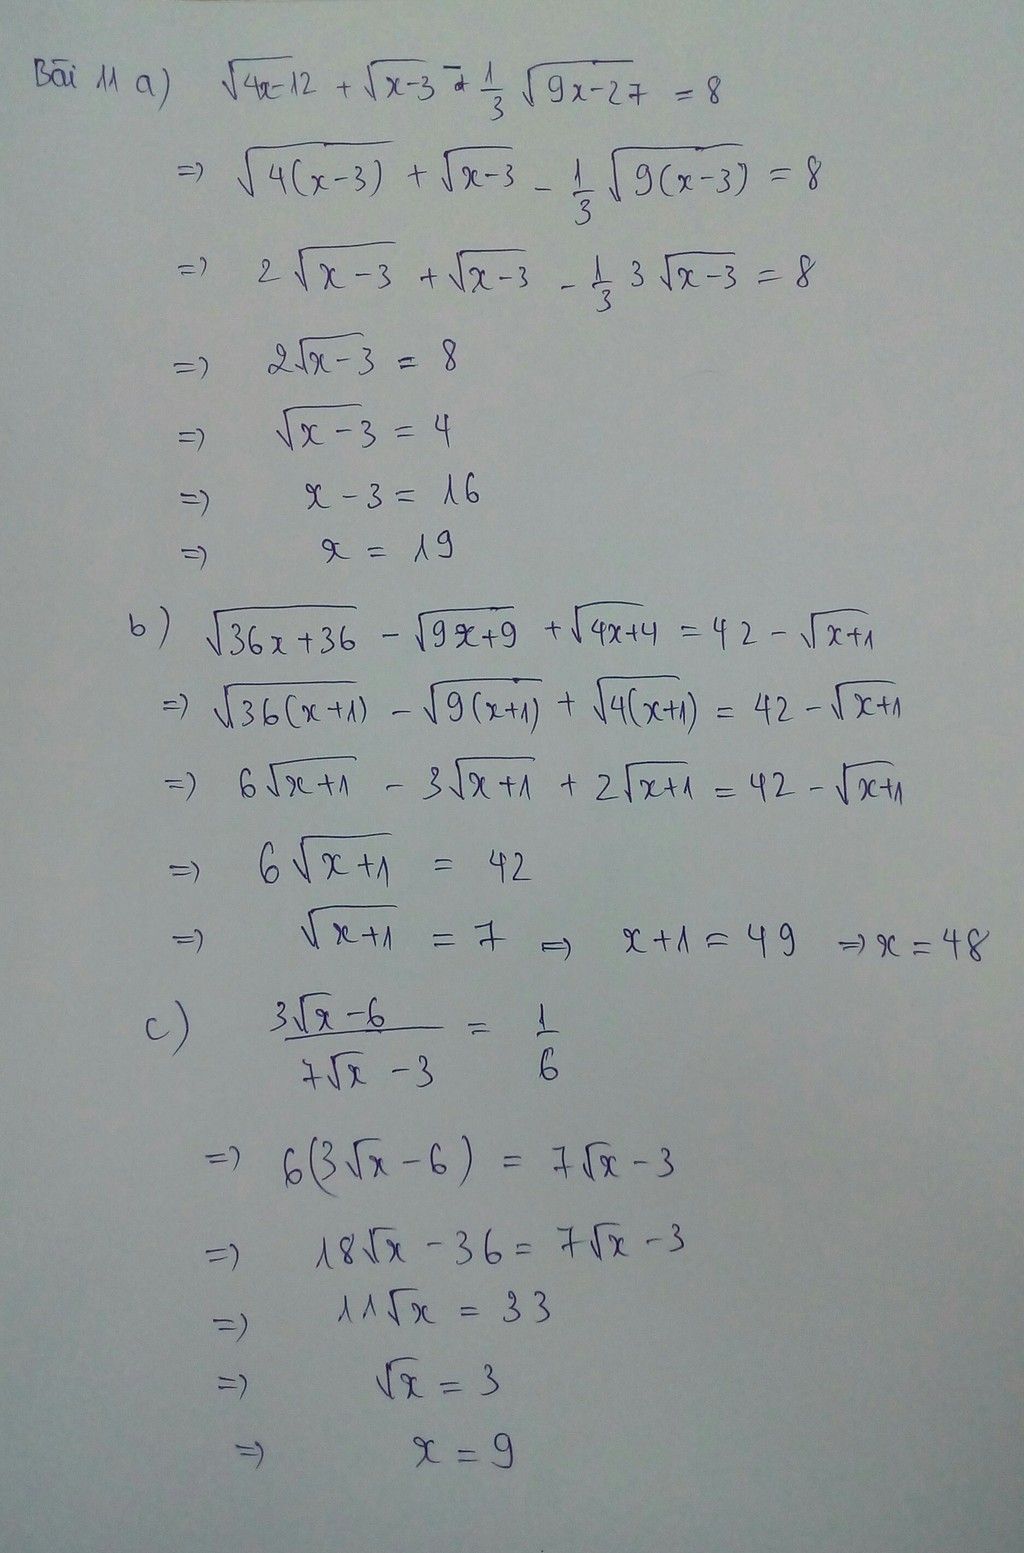 Bài 11 a) √4x-12 + √x-3 - 1/3 √9x-27 = 8
=> √4(x-3) + √x-3 - 1/3 √9(x-3) = 8
=> 2√x-3 + √x-3 - 1/3 3√x-3 = 8
=> 2√x-3 = 8
=> √x-3 = 4
=> x-3 = 16
=> x = 19
b) √36x+36 - √9x+9 + √4x+4 = 42 - √x+1
=> √36(x+1) - √9(x+1) + √4(x+1) = 42 - √x+1
=> 6√x+1 - 3√x+1 + 2√x+1 = 42 - √x+1
=> 6√x+1 = 42
=> √x+1 = 7 => x+1 = 49 => x = 48
c) 3√x-6 / 7√x-3 = 1/6
=> 6(3√x-6) = 7√x-3
=> 18√x-36 = 7√x-3
=> 11√x = 33
=> √x = 3
=> x = 9